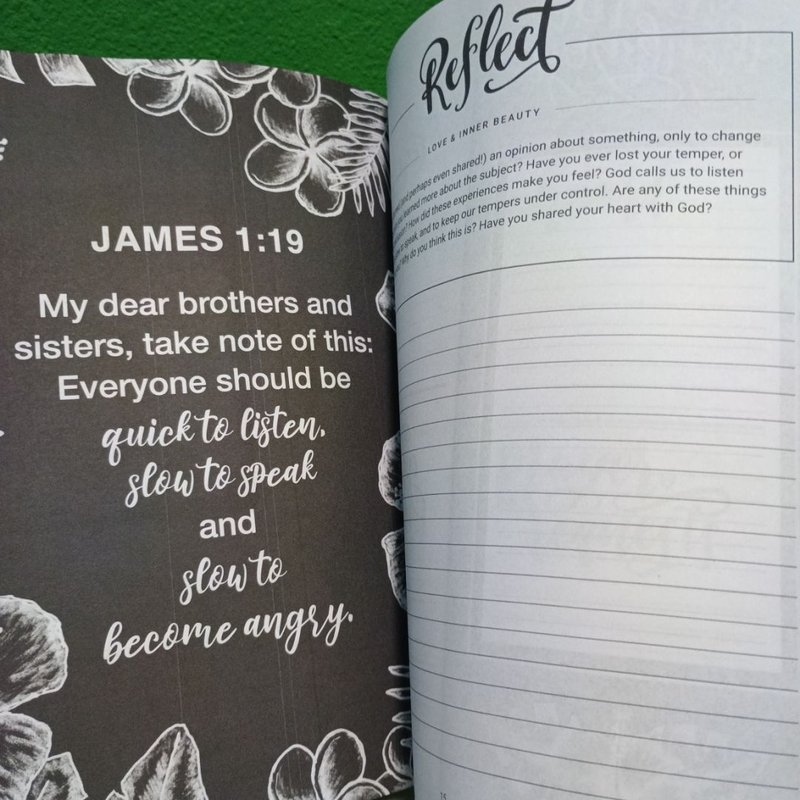 JAMES 1:19
My dear brothers and
sisters, take note of this:
Everyone should be
quick to listen,
slow to speak
and
slow to
become angry.
Reflect
LOVE & INNER BEAUTY
perhaps even shared!) an opinion about something, only to change
learned more about the subject? Have you ever lost your temper, or
How did these experiences make you feel? God calls us to listen
to speak, and to keep our tempers under control. Are any of these things
Why do you think this is? Have you shared your heart with God?
15